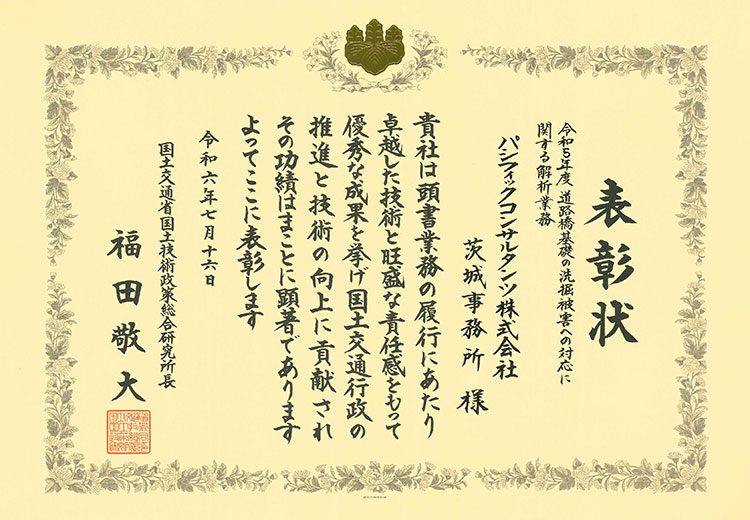 表彰状
令和5年度 道路橋基礎の洗掘被害への対応に
関する解析業務
パシフィックコンサルタンツ株式会社
茨城事務所 様
貴社は頭書業務の履行にあたり
卓越した技術と旺盛な責任感をもって
優秀な成果を挙げ国土交通行政の
推進と技術の向上に貢献され
その功績はまことに顕著であります
よってここに表彰します
令和六年七月十六日
国土交通省国土技術政策総合研究所長
福田敬大